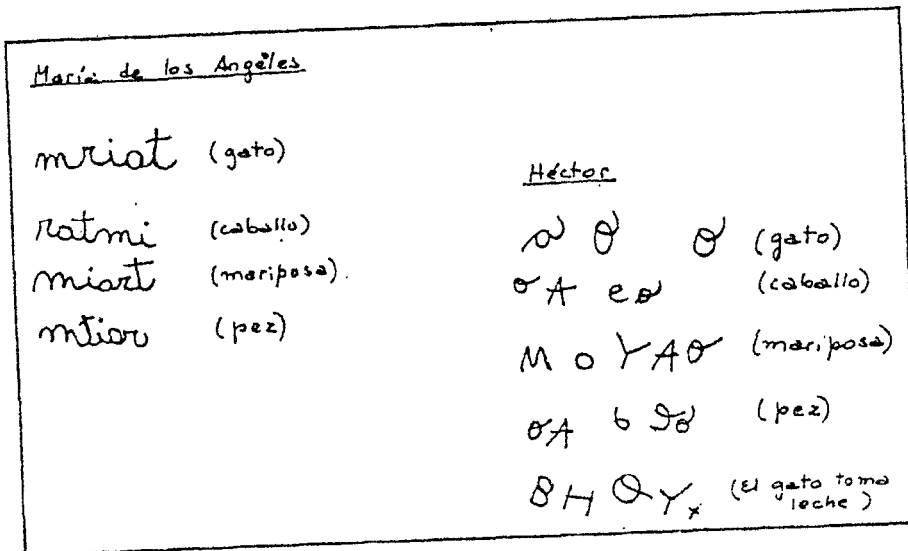 María de los Angeles
mriat (gato)
ratmi (caballo)
miart (mariposa).
mtiar (pez)
Héctor
a O O (gato)
o A e o (caballo)
M o Y A O (mariposa)
O A b (pez)
B H O Y x (El gato toma
leche)